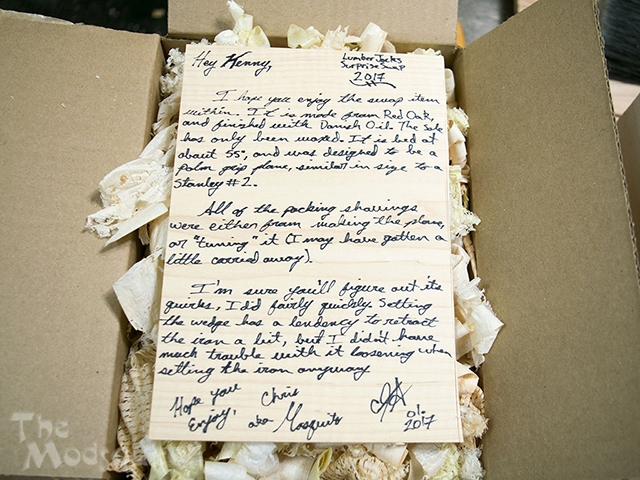 Hey Kenny,
LumberJocks
Surprise Swap
2017
I hope you enjoy the swap item
within. It is made from Red Oak,
and finished with Danish Oil. The Sole
has only been waxed. It is bed at
about 55°, and was designed to be a
palm grip plane, similar in size to a
Stanley #2.
All of the packing shavings
were either from making the plane,
or "tuning" it (I may have gotten a
little carried away).
I'm sure you'll figure out its
quirks, I did fairly quickly. Setting
the wedge has a tendency to retract
the iron a bit, but I didn't have
much trouble with it loosening when
setting the iron anyway
Hope you
Enjoy,
Chris
aka Mosquito
01.
2017
The